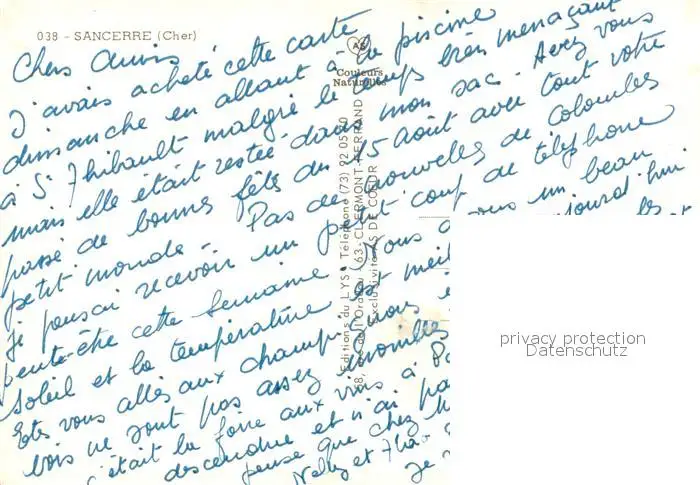 038 - SANCERRE (Cher)
Chers Amis
J'avais acheté cette carte
dimanche en allant à la piscine
à St Thibault malgré le temps très menaçant
mais elle était restée dans mon sac. Avez vous
passé de bonnes fêtes du 15 Août avec tout votre
petit monde - Pas de nouvelles de Colombes
Je pensais recevoir un petit coup de téléphone
peut-être cette semaine. Nous un beau
soleil et la température est aujourd'hui
Etes vous allés aux champignons les
bois ne sont pas assez
c'était la foire aux vins à
descendue et n'ai
pense que chez
et
Je
Couleurs
Naturelles
Editions du LYS - Téléphone (73) 92 05
63-CLERMONT-FERRAND
Exclusivité AS DE COEUR
privacy protection
Datenschutz